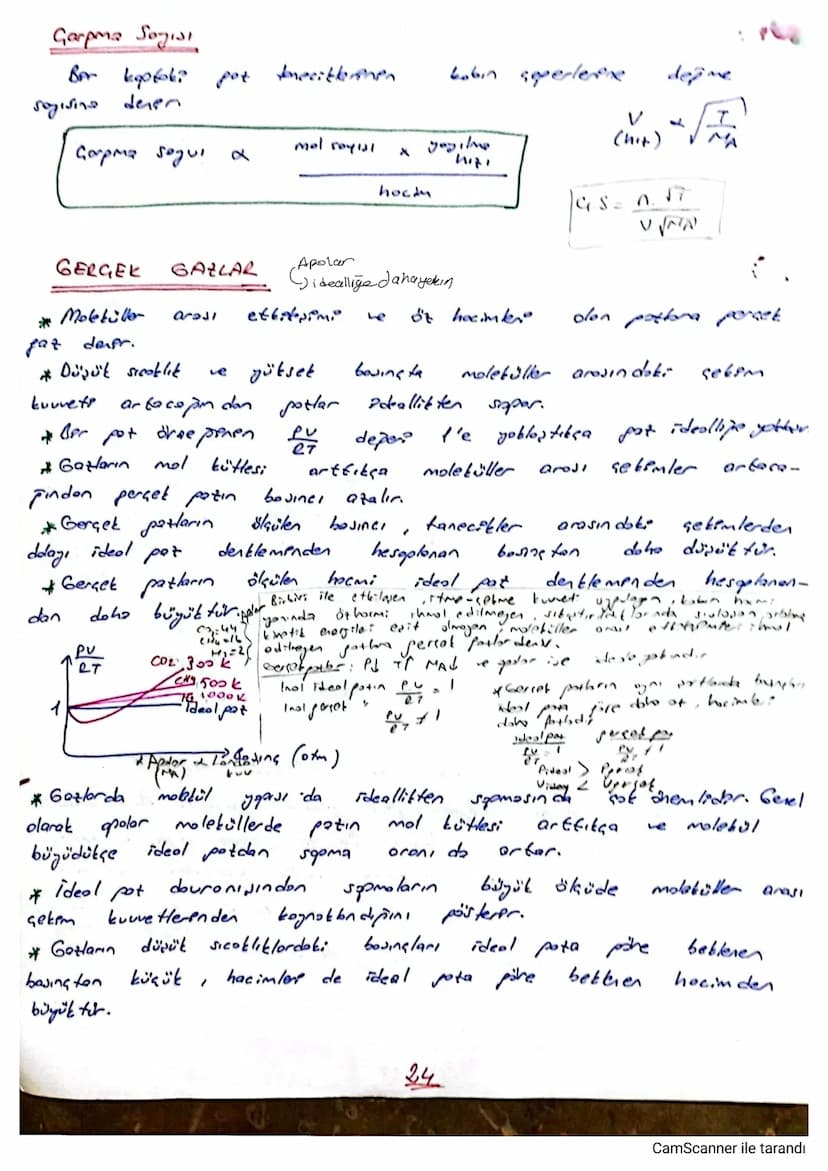 Çarpma Sayısı
Bir kaptaki gaz taneciklerinin kabın çeperlerine değme
sayısına denir.
V (hız) α √T/MA
Çarpma sayısı α mol sayısı x yayılma hızı / hacim
Ç.S = n.√T / V√MA
GERÇEK GAZLAR
Apolar
↳ idealliğe daha yakın
* Moleküller arası etkileşimi ve öz hacimleri olan gazlara gerçek
gaz denir.
* Düşük sıcaklık ve yüksek basınçta moleküller arasındaki çekim
kuvveti artacağından gazlar ideallikten sapar.
* Bir gaz örneğinin PV/RT değeri 1'e yaklaştıkça gaz idealliğe yaklaşır
* Gazların mol kütlesi arttıkça moleküller arası çekimler artaca-
ğından gerçek gazın basıncı azalır.
* Gerçek gazların ölçülen basıncı, tanecikler arasındaki çekimlerden
dolayı ideal gaz denkleminden hesaplanan basınçtan daha düşüktür.
* Gerçek gazların ölçülen hacmi ideal gaz denkleminden hesaplanan-
dan daha büyüktür.
Birbiri ile etkileşen, itme-çekme kuvveti
öz hacmi ihmal edilmeyen,
kinetik enerjileri eşit olmayan, moleküller arası etkileşimler ihmal
edilmeyen gazlara gerçek gazlar denir.
Gerçek gazlar: P↓ T↑ MA↓ ve apolar ise ideale yakındır
1 mol ideal gazın PV/RT = 1
1 mol gerçek " PV/RT ≠ 1
* Gerçek gazların aynı şartlarda basınçları
ideal gaza göre daha az, hacimleri
daha fazladır
ideal gaz PV/RT = 1
gerçek gaz PV/RT ≠ 1
Pideal > Pgerçek
Videal < Vgerçek
PV/RT
CO2: 44
CH4 = 16
H2 = 2
apolar
CO2: 300 K
CH4 500 K
1000 K
İdeal gaz
1
Basınç (atm)
* Apolar
(MA)
* London
kuv
* Gazlarda molekül yapısı da ideallikten sapmasında çok önemlidir. Genel
olarak apolar moleküllerde gazın mol kütlesi arttıkça ve molekül
büyüdükçe ideal gazdan sapma oranı da artar.
* İdeal gaz davranışından sapmaların büyük ölçüde moleküller arası
çekim kuvvetlerinden kaynaklandığını gösterir.
* Gazların düşük sıcaklıklardaki basınçları ideal gaza göre beklenen
basınçtan küçük, hacimleri de ideal gaza göre beklenen hacimden
büyüktür.
24
CamScanner ile tarandı